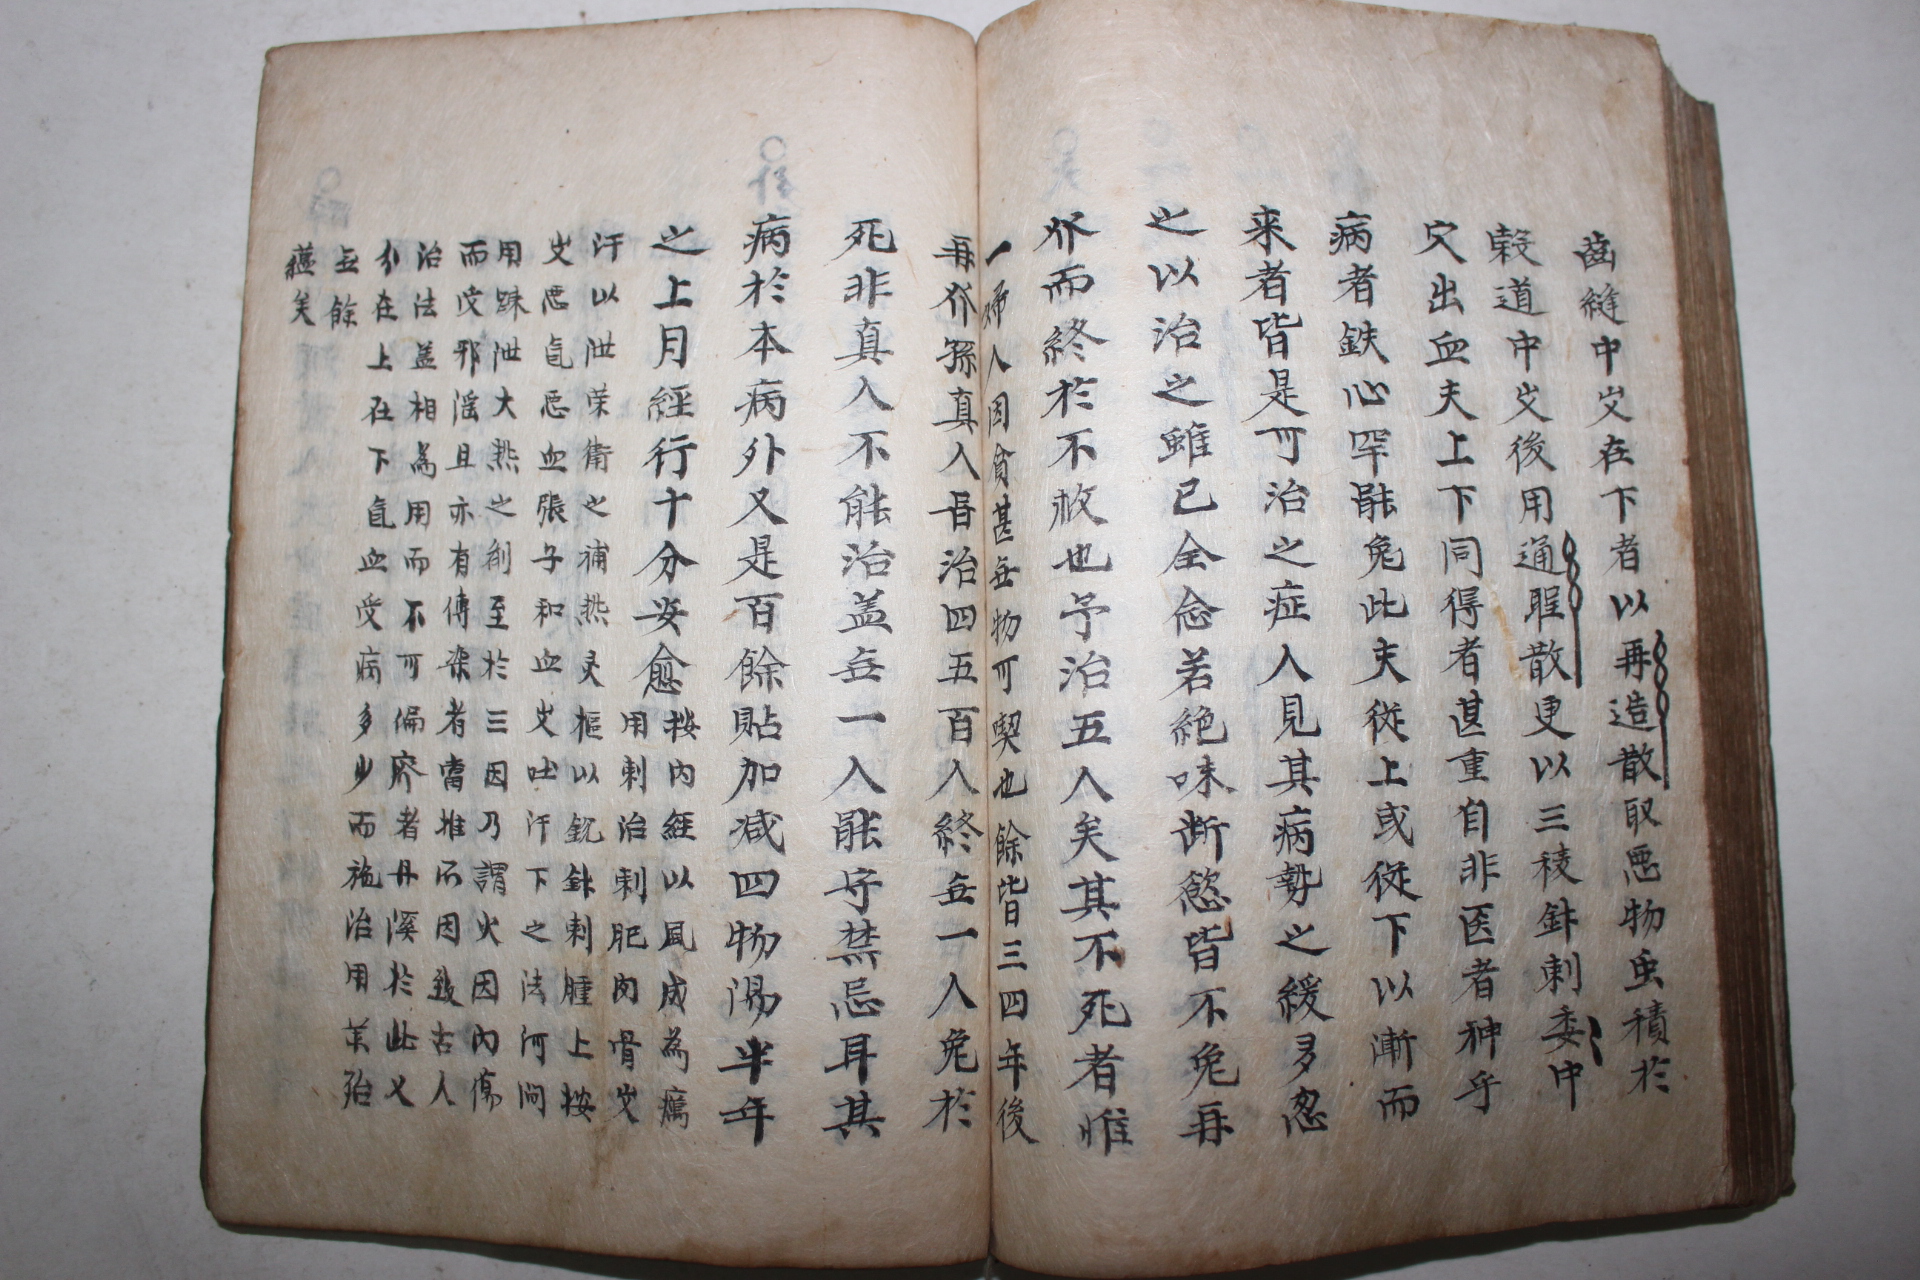 齒縫中出在下者以再造散取惡物虫積於
穀道中出後用通聖散更以三稜針刺委中
穴出血夫上下同得者甚重自非医者神乎
病者鉄心罕能免此夫從上或從下以漸而
来者皆是可治之症人見其病勢之緩多忽
之以治之雖已全念若絶味断慾皆不免再
發而終於不救也予治五人矣其不死者惟
一婦人因貧甚無物可喫也餘皆三四年後
再發孫真人昔治四五百人終無一人免於
死非真人不能治盖無一人能守禁忌耳其
病於本病外又是百餘貼加减四物湯半年
之上月經行十分安愈
按內經以風成為癘
用刺治刺肥肉骨出
汗以泄榮衛之補热灵樞以銳針刺腫上按
出惡氣惡血張子和血出吐汗下之法河間
用踈泄大热之劑至於三因乃謂火因內傷
而受邪淫且亦有傳染者當推所因致古人
治法盖相為用而不可偏廢者丹溪於此又
分在上在下氣血受病多少而施治用藥殆
無餘
蘊矣